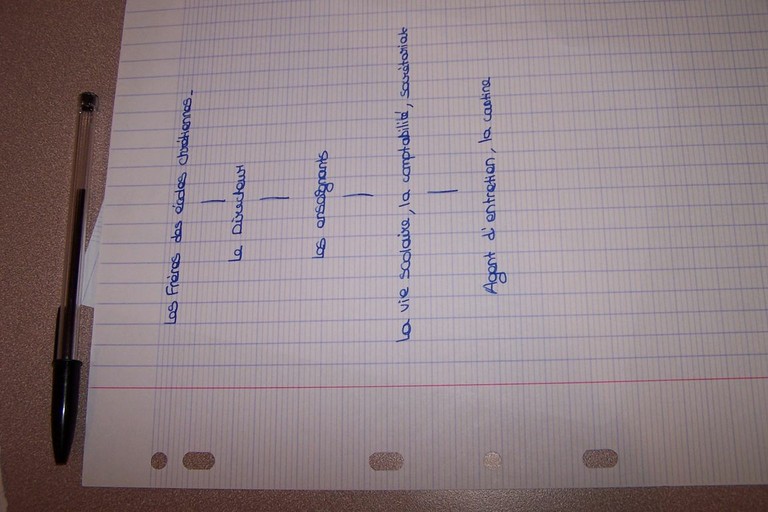 Les Frères des écoles chrétiennes.
Le Directeur
Les enseignants
La vie scolaire, la comptabilité, secrétariat
Agent d'entretien, la cantine